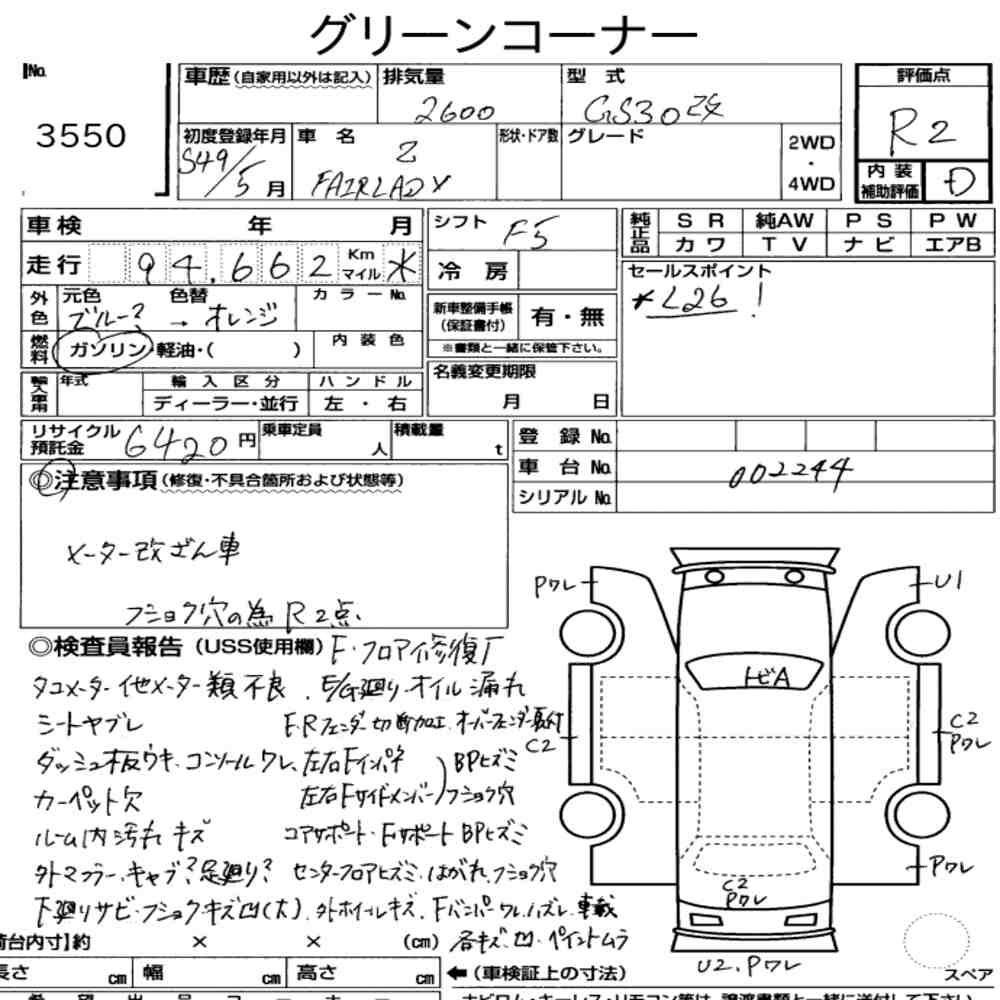 グリーンコーナー
No. 3550
車歴 (自家用以外は記入) 排気量 2600 型式 GS30改 評価点 R2
初度登録年月 S49/5月 車名 Z FAIRLADY 形状・ドア数 グレード 2WD・4WD 内装補助評価 D
車検 年 月 シフト F5 純正品 SR 純AW PS PW
走行 94,662 Km マイル ※ 冷房 カワ TV ナビ エアB
外色 元色 ブルー? → 色替 オレンジ カラーNo. 新車整備手帳 (保証書付) 有・無 セールスポイント
*L26!
燃料 ガソリン・軽油・( ) 内装色 ※書類と一緒に保管下さい。
輸入車用 年式 輸入区分 ハンドル 名義変更期限
ディーラー・並行 左・右 月 日
リサイクル預託金 6420円 乗車定員 人 積載量 t 登録No.
車台No. 002244
シリアルNo.
◎注意事項 (修復・不具合箇所および状態等)
メーター改ざん車
フショク穴の為R2点
◎検査員報告 (USS使用欄) F・フロア修復
タコメーター他メーター類不良 E/G廻りオイル漏れ
シートヤブレ F.Rフェンダー切断加工 オーバーフェンダー
ダッシュ板ウキ・コンソールワレ 左右Fインパネ BPヒズミ
カーペット穴 左右Fサイドメンバー フショク穴
ルーム内汚れキズ コアサポート・Fサポート BPヒズミ
外マフラー、キャブ?足廻り? センターフロアヒズミ・はがれ、フショク穴
下廻りサビ・フショクキズ凹(大) 外ホイールキズ、Fバンパーワレハズレ 車載
各キズ、凹・ペイントムラ
Pワレ
U1
トビA
C2
C2
Pワレ
Pワレ
C2
Pワレ
U2. Pワレ
荷台内寸】約 × × (cm)
長さ cm 幅 cm 高さ cm ←(車検証上の寸法) スペア